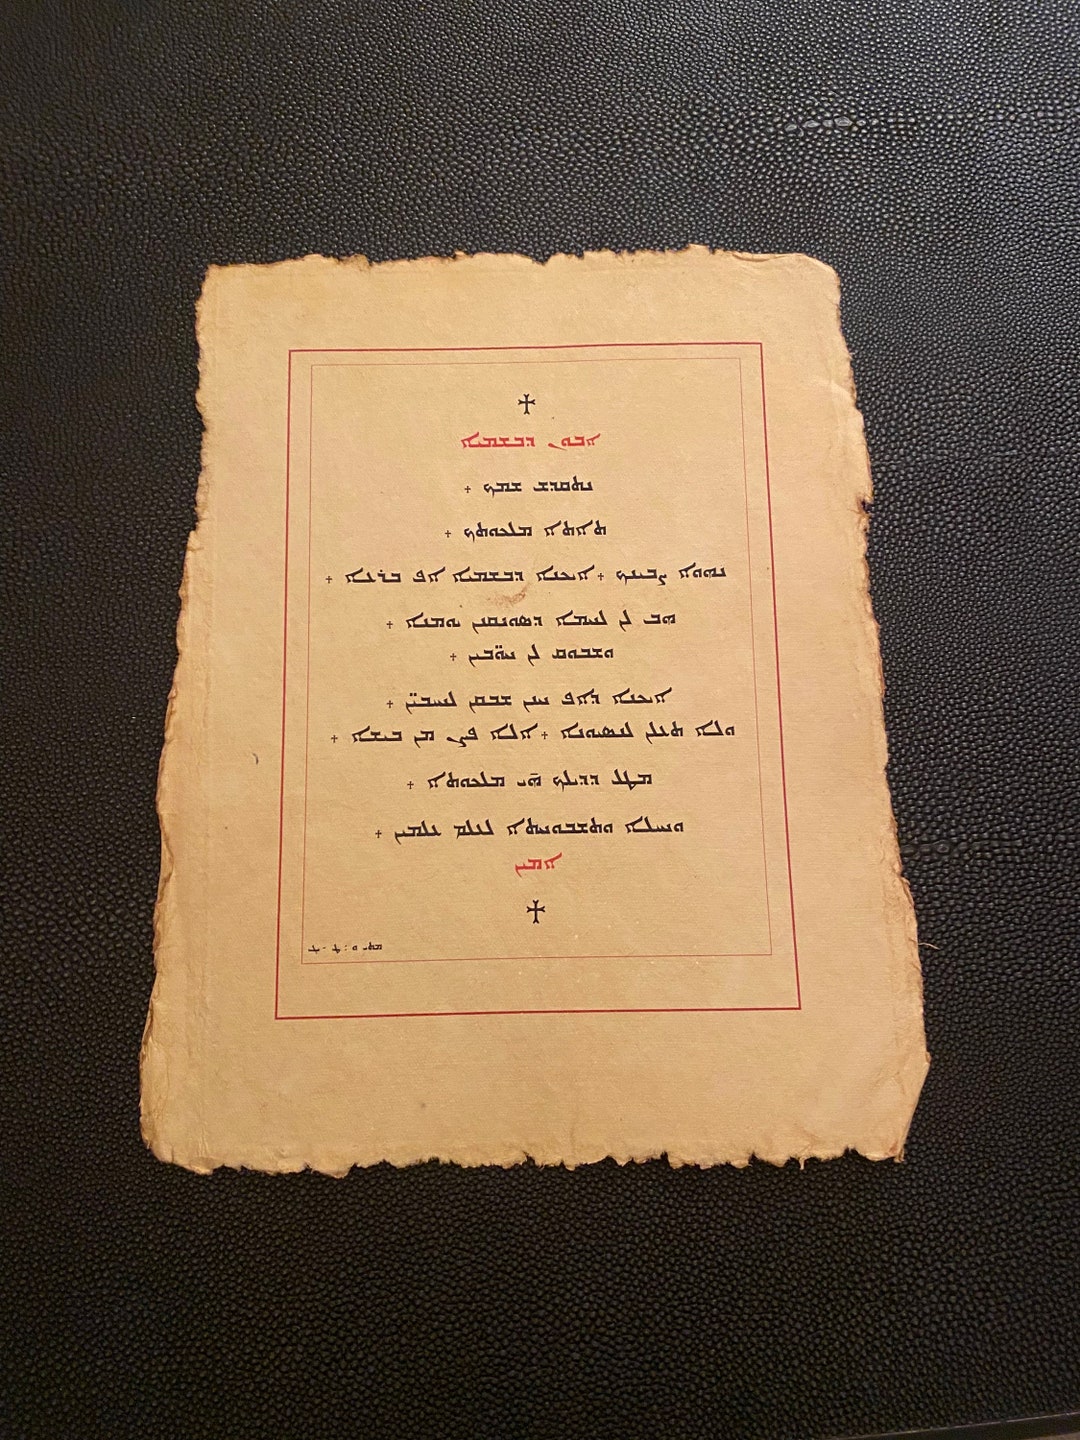 ✝
ܐܒܘܢ ܕܒܫܡܝܐ
ܢܬܩܕܫ ܫܡܟ +
ܬܐܬܐ ܡܠܟܘܬܟ +
ܢܗܘܐ ܨܒܝܢܟ + ܐܝܟܢܐ ܕܒܫܡܝܐ ܐܦ ܒܪܥܐ +
ܗܒ ܠܢ ܠܚܡܐ ܕܣܘܢܩܢܢ ܝܘܡܢܐ +
ܘܫܒܘܩ ܠܢ ܚܘ̈ܒܝܢ +
ܐܝܟܢܐ ܕܐܦ ܚܢܢ ܫܒܩܢ ܠܚܝܒܝ̈ܢ +
ܘܠܐ ܬܥܠܢ ܠܢܣܝܘܢܐ + ܐܠܐ ܦܨܢ ܡܢ ܒܝܫܐ +
ܡܛܠ ܕܕܝܠܟ ܗ̄ܝ ܡܠܟܘܬܐ +
ܘܚܝܠܐ ܘܬܫܒܘܚܬܐ ܠܥܠܡ ܥܠܡܝܢ +
ܐܡܝܢ
✝
ܡܬܝ ܘ : ܛ -